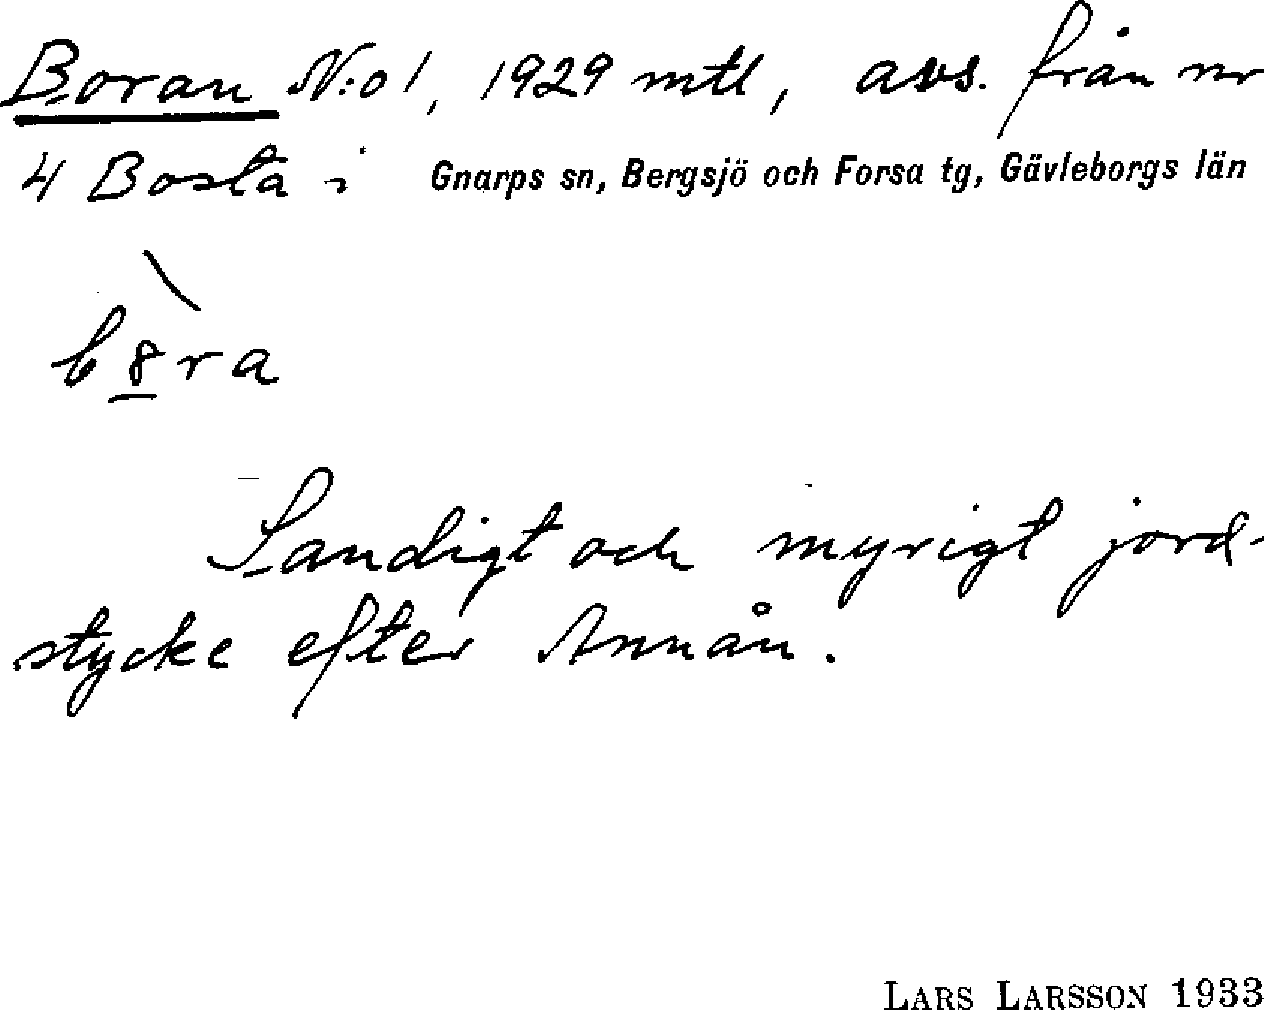 Boran N:o 1, 1929 mtl, avs. från nr
4 Bosta i Gnarps sn, Bergsjö och Forsa tg, Gävleborgs län
b8ra
Sandigt och myrigt jord-
stycke efter Annån.
LARS LARSSON 1933